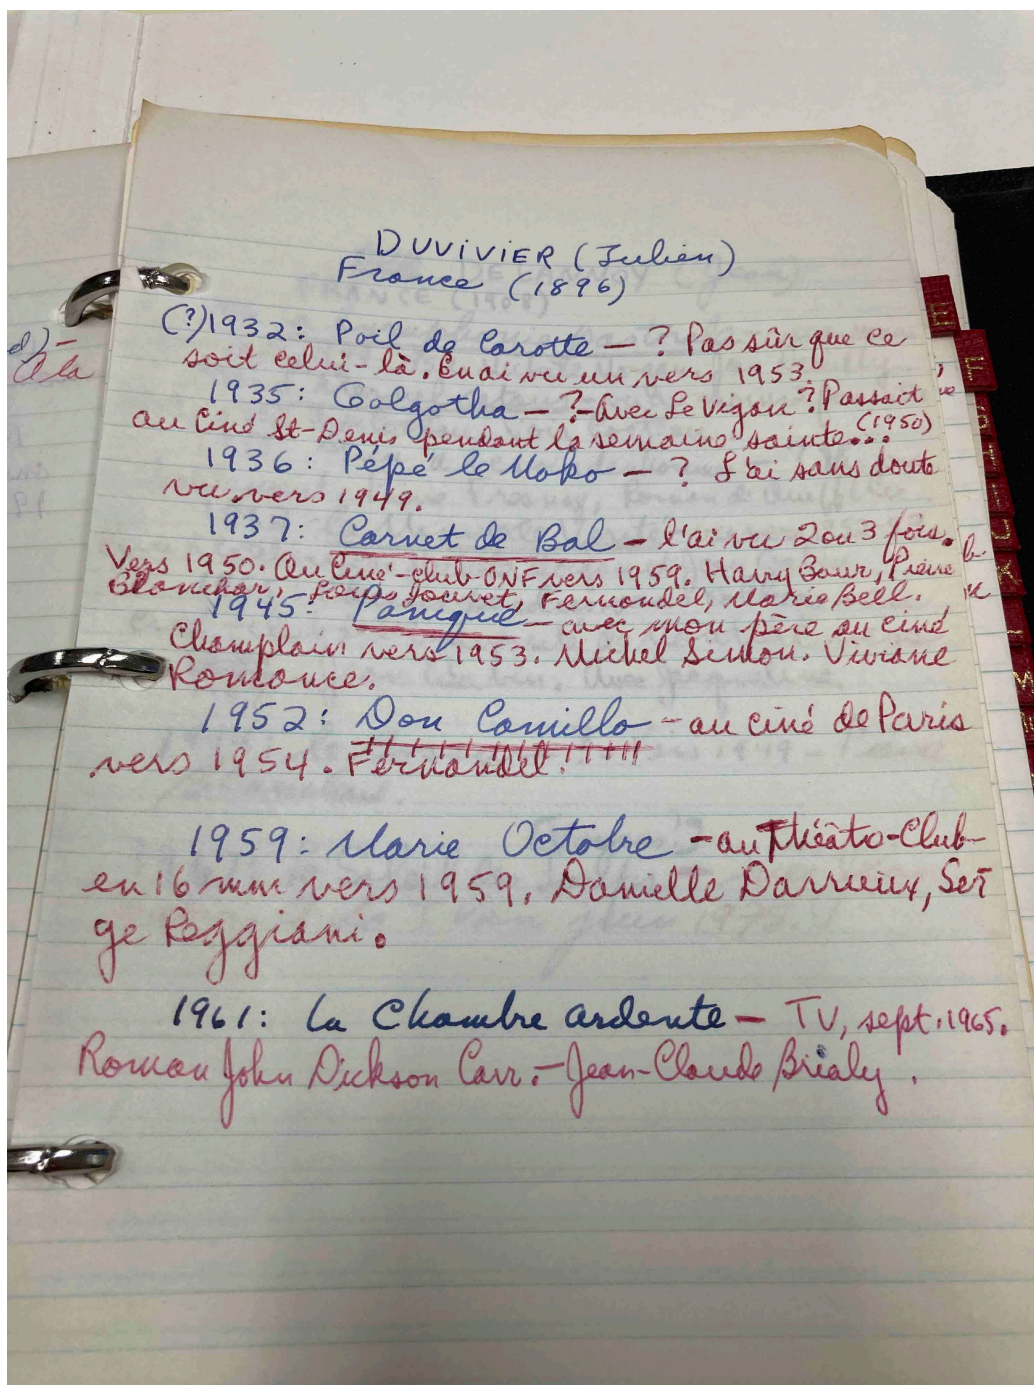 DUVIVIER (Julien)
France (1896)
(?)1932: Poil de Carotte — ? Pas sûr que ce
soit celui-là. En ai vu un vers 1953
1935: Golgotha — ? - Avec Le Vigan? Passait
au Ciné St-Denis pendant la semaine sainte... (1950)
1936: Pépé le Moko — ? L'ai sans doute
vu vers 1949.
1937: Carnet de Bal — l'ai vu 2 ou 3 fois.
Vers 1950. Au Ciné-club-ONF vers 1959. Harry Baur, Pierre
Blanchar, Louis Jouvet, Fernandel, Marie Bell.
1945: Panique — avec mon père au ciné
Champlain vers 1953. Michel Simon. Viviane
Romance.
1952: Don Camillo — au ciné de Paris
vers 1954. Fernandel.
1959: Marie Octobre — au Théâto-Club-
en 16 mm vers 1959. Danielle Darrieux, Ser
ge Reggiani.
1961: La Chambre ardente — TV, sept. 1965.
Roman John Dickson Carr. — Jean-Claude Brialy.
d) —
à la
E
F
G
H
I
J
K
L
M